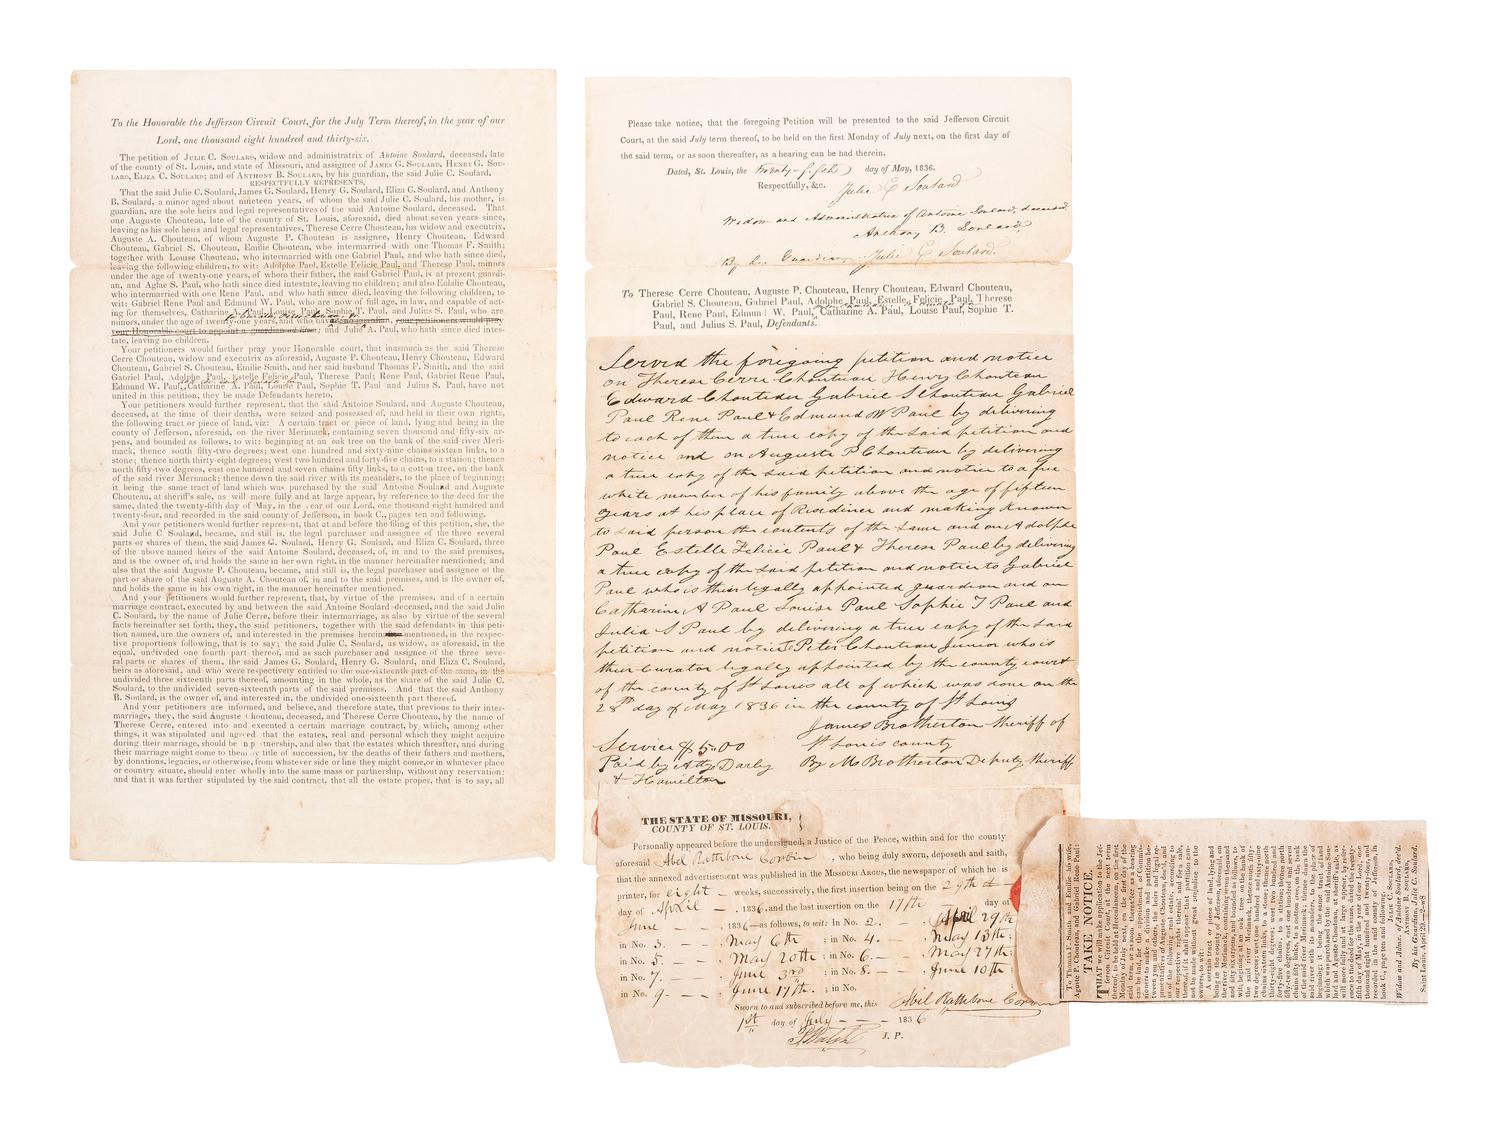 To the Honorable the Jefferson Circuit Court, for the July Term thereof, in the year of our
Lord, one thousand eight hundred and thirty-six.
The petition of JULIE C. SOULARD, widow and administratrix of Antoine Soulard, deceased, late
of the county of St. Louis, and state of Missouri, and assignee of JAMES G. SOULARD, HENRY G. SOU-
LARD, ELIZA C. SOULARD; and of ANTHONY B. SOULARD, by his guardian, the said Julie C. Soulard.
RESPECTFULLY REPRESENTS,
That the said Julie C. Soulard, James G. Soulard, Henry G. Soulard, Eliza C. Soulard, and Anthony
B. Soulard, a minor aged about nineteen years, of whom the said Julie C. Soulard, his mother, is
guardian, are the sole heirs and legal representatives of the said Antoine Soulard, deceased. That
one Auguste Chouteau, late of the county of St. Louis, aforesaid, died about seven years since,
leaving as his sole heirs and legal representatives, Therese Cerre Chouteau, his widow and executrix,
Auguste A. Chouteau, of whom Auguste P. Chouteau is assignee, Henry Chouteau, Edward
Chouteau, Gabriel S. Chouteau, Emilie Chouteau, who intermarried with one Thomas F. Smith;
together with Louise Chouteau, who intermarried with one Gabriel Paul, and who hath since died,
leaving the following children, to wit: Adolphe Paul, Estelle Felicie Paul, and Therese Paul, minors
under the age of twenty-one years, of whom their father, the said Gabriel Paul, is at present guardi-
an, and Aglae S. Paul, who hath since died intestate, leaving no children; and also Eulalie Chouteau,
who intermarried with one Rene Paul, and who hath since died, leaving the following children, to
wit: Gabriel Rene Paul and Edmund W. Paul, who are now of full age, in law, and capable of act-
ing for themselves, Catharine A. Paul, Louise Paul, Sophie T. Paul, and Julius S. Paul, who are
minors, under the age of twenty-one years, and who have no guardian, your petitioners would pray
your Honorable court to appoint a guardian ad litem; and Julie A. Paul, who hath since died intes-
tate, leaving no children.
Your petitioners would further pray your Honorable court, that inasmuch as the said Therese
Cerre Chouteau, widow and executrix as aforesaid, Auguste P. Chouteau, Henry Chouteau, Edward
Chouteau, Gabriel S. Chouteau, Emilie Smith, and her said husband Thomas F. Smith, and the said
Gabriel Paul, Adolphe Paul, Estelle Felicie Paul, Therese Paul; Rene Paul, Gabriel Rene Paul,
Edmund W. Paul, Catharine A. Paul, Louise Paul, Sophie T. Paul and Julius S. Paul, have not
united in this petition, they be made Defendants hereto.
Your petitioners would further represent, that the said Antoine Soulard, and Auguste Chouteau,
deceased, at the time of their deaths, were seized and possessed of, and held in their own rights,
the following tract or piece of land, viz: A certain tract or piece of land, lying and being in the
county of Jefferson, on the river Merimack, containing seven thousand and fifty-six ar-
pens, and bounded as follows, to wit: beginning at an oak tree on the bank of the said river Meri-
mack, thence south fifty-two degrees; west one hundred and sixty-nine chains sixteen links, to a
stone; thence north thirty-eight degrees; west two hundred and forty-five chains, to a station; thence
north fifty-two degrees, east one hundred and seven chains fifty links, to a cotton tree, on the bank
of the said river Merimack; thence down the said river with its meanders, to the place of beginning;
it being the same tract of land which was purchased by the said Antoine Soulard and Auguste
Chouteau, at sheriff's sale, as will more fully and at large appear, by reference to the deed for the
same, dated the twenty-fifth day of May, in the year of our Lord, one thousand eight hundred and
twenty-four, and recorded in the said county of Jefferson, in book C., pages ten and following.
And your petitioners would further represent, that at and before the filing of this petition, she, the
said Julie C Soulard, became, and still is, the legal purchaser and assignee of the three several
parts or shares of them, the said James G. Soulard, Henry G. Soulard and Eliza C. Soulard, three
of the above named heirs of the said Antoine Soulard, deceased, of, in and to the said premises,
and is the owner of, and holds the same in her own right, in the manner hereinafter mentioned; and
also that the said Auguste P. Chouteau, became, and still is, the legal purchaser and assignee of the
part or share of the said Auguste A. Chouteau of, in and to the said premises, and is the owner of,
and holds the same in his own right, in the manner hereinafter mentioned.
And your petitioners would further represent, that, by virtue of the premises, and of a certain
marriage contract, executed by and between the said Antoine Soulard deceased, and the said Julie
C. Soulard, by the name of Julie Cerre, before their intermarriage, as also by virtue of the several
facts hereinafter set forth, they, the said petitioners, together with the said defendants in this peti-
tion named, are the owners of, and interested in the premises herein mentioned, in the respec-
tive proportions following, that is to say; the said Julie C. Soulard, as widow, as aforesaid, in the
equal, undivided one fourth part thereof, and as such purchaser and assignee of the three seve-
ral parts or shares of them, the said James G. Soulard, Henry G. Soulard, and Eliza C. Soulard,
heirs as aforesaid, and who were respectively entitled to the one-sixteenth part of the same, in the
undivided three sixteenth parts thereof, amounting in the whole, as the share of the said Julie C.
Soulard, to the undivided seven-sixteenth parts of the said premises. And that the said Anthony
B. Soulard, is the owner of, and interested in, the undivided one-sixteenth part thereof.
And your petitioners are informed, and believe, and therefore state, that previous to their inter-
marriage, they, the said Auguste Chouteau, deceased, and Therese Cerre Chouteau, by the name of
Therese Cerre, entered into and executed a certain marriage contract, by which, among other
things, it was stipulated and agreed that the estates, real and personal which they might acquire
during their marriage, should be in partnership, and also that the estates which thereafter, and during
their marriage might come to them by title of succession, by the deaths of their fathers and mothers,
by donations, legacies, or otherwise, from whatever side or line they might come, or in whatever place
or country situate, should enter wholly into the same mass or partnership, without any reservation:
and that it was further stipulated by the said contract, that all the estate proper, that is to say, all
Please take notice, that the foregoing Petition will be presented to the said Jefferson Circuit
Court, at the said July term thereof, to be held on the first Monday of July next, on the first day of
the said term, or as soon thereafter, as a hearing can be had therein.
Dated, St. Louis, the twenty-fifth day of May, 1836.
Respectfully, &c. Julie C Soulard
Widow and Administratrix of Antoine Soulard, deceased
Anthony B. Soulard
By his Guardian, Julie C Soulard.
To Therese Cerre Chouteau, Auguste P. Chouteau, Henry Chouteau, Edward Chouteau,
Gabriel S. Chouteau, Gabriel Paul, Adolphe Paul, Estelle Felicie Paul, Therese
Paul, Rene Paul, Edmund W. Paul, Catharine A. Paul, Louise Paul, Sophie T.
Paul, and Julius S. Paul, Defendants.
Served the foregoing petition and notice
on Therese Cerre Chouteau Henry Chouteau
Edward Chouteau Gabriel S Chouteau Gabriel
Paul Rene Paul & Edmund W Paul by delivering
to each of them a true copy of the said petition and
notice and on Auguste P Chouteau by delivering
a true copy of the said petition and notice to a free
white member of his family above the age of fifteen
years at his place of Residence and making known
to said person the contents of the same and on Adolphe
Paul Estelle Felicie Paul & Therese Paul by delivering
a true copy of the said petition and notice to Gabriel
Paul who is their legally appointed guardian and on
Catharine A Paul Louise Paul Sophie T Paul and
Julia S Paul by delivering a true copy of the said
petition and notice to Peter Chouteau Junior who is
their Curator legally appointed by the county court
of the county of St Louis all of which was done on the
28th day of May 1836 in the county of St Louis
James Brotherton Sheriff of
St Louis county
By M Brotherton Deputy Sheriff
Service $5.00
Paid by Atty Darby
& Hamilton
THE STATE OF MISSOURI, }
COUNTY OF ST. LOUIS.
Personally appeared before the undersigned, a Justice of the Peace, within and for the county
aforesaid Abel Rathbone Corbin, who being duly sworn, deposeth and saith,
that the annexed advertisement was published in the MISSOURI ARGUS, the newspaper of which he is
printer, for eight weeks, successively, the first insertion being on the 29th
day of April, 1836, and the last insertion on the 17th day of
June 1836—as follows, to wit: In No. 2. April 29th
in No. 3. May 6th; in No. 4. May 13th;
in No. 5. May 20th; in No. 6. May 27th;
in No. 7. June 3rd; in No. 8. June 10th;
in No. 9. June 17th; in No.
Abel Rathbone Corbin
Sworn to and subscribed before me, this
1st day of July 1836
J. P.
To Thomas F. Smith and Emilie his wife,
Aguste P. Chouteau, and Gabriel Rene Paul:
TAKE NOTICE.
THAT we will make application to the Jef-
ferson Circuit Court, at the next term
thereof, to be held at Herculaneum, on the first
Monday of July next, on the first day of the said
term, or as soon thereafter as a hearing
can be had, for the appointment of Commis-
sioners to make a division and partition be-
tween you and others, the heirs and legal re-
presentatives of Auguste Chouteau, dec'd, and
us of the following real estate, according to
our respective rights therein; and for a sale
thereof, if it shall appear that partition can-
not be made without great prejudice to the
owners, to wit:
A certain tract or piece of land, lying and
being in the county of Jefferson, aforesaid, on
the river Merimack, containing seven thousand
and fifty-six arpens, and bounded as follows, to
wit; beginning at an oak tree on the bank of
the said river Merimack, thence south fifty-
two degrees; west one hundred and sixty-nine
chains sixteen links, to a stone; thence north
thirty-eight degrees; west two hundred and
forty-five chains, to a station; thence north
fifty-two degrees, east one hundred and seven
chains fifty links, to a cotton tree, on the bank
of the said river Merimack; thence down the
said river with its meanders, to the place of
beginning; it being the same tract of land
which was purchased by the said Antoine Sou-
lard and Aguste Chouteau, at sheriff sale, as
will more fully and at large appear, by refer-
ence to the deed for the same, dated the twenty-
fifth day of May, in the year of our Lord, one
thousand eight hundred and twenty-four, and
recorded in the said county of Jefferson, in
book C., pages ten and following.
JULIE C. SOULARD,
Widow and Admx. of Antoine Soulard, dec'd.
ANTHONY B. SOULARD,
By his Guardian, Julie C. Soulard.
Saint Louis, April 23—2—w8